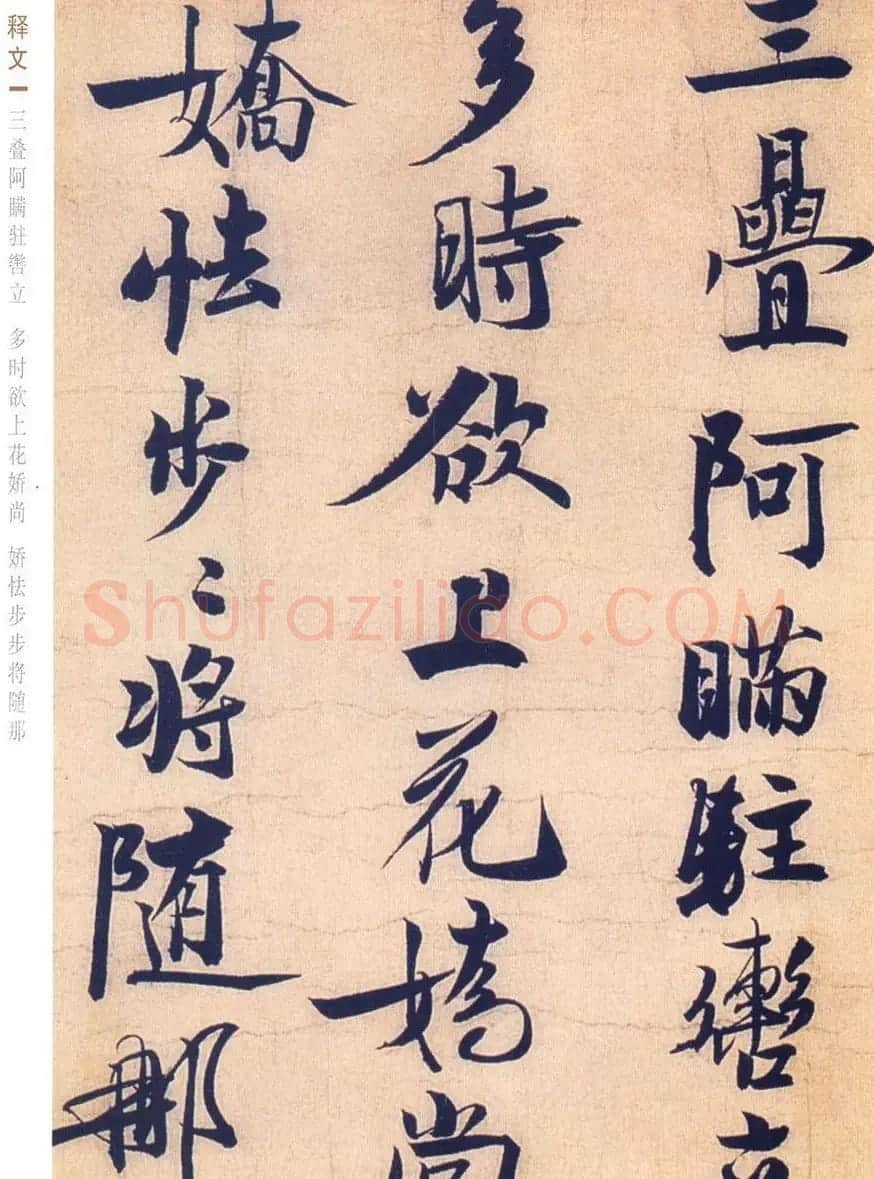 三疊阿瞞駐轡立
多時欲上花嬌尚
嬌怯步〻將随那
释文
三叠阿瞒驻辔立 多时欲上花娇尚 娇怯步步将随那
Shufaziliao.COM